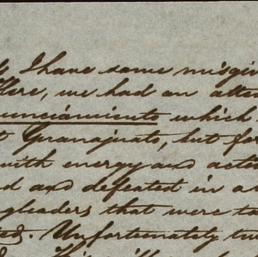 I have some misgiv
Here, we had an atte
unciamiento which
t Guanajuato, but for
with energy and acti
d and defeated in a
gleaders that were ta
ted. Unfortunately tw